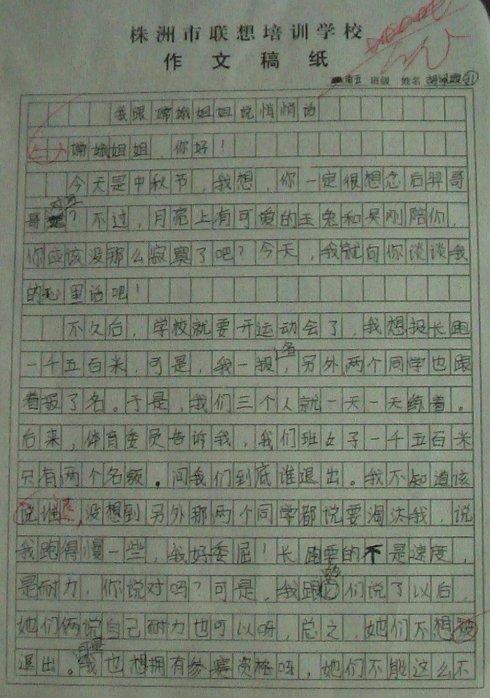 株洲市联想培训学校
作文稿纸
班级 姓名
我跟嫦娥姐姐说悄悄话
嫦娥姐姐,你好!
今天是中秋节,我想,你一定很想念后羿哥
哥吧?不过,月亮上有可爱的玉兔和吴刚陪你,
你应该没那么寂寞了吧?今天,我就向你谈谈我
的心里话吧!
不久后,学校就要开运动会了,我想报长跑
一千五百米,可是,我一报名,另外两个同学也跟
着报了名。于是,我们三个人就一天一天练着。
后来,体育委员告诉我,我们班女子一千五百米
只有两个名额。问我们到底谁退出。我不知道该
说谁退,没想到另外那两个同学都说要淘汰我,说
我跑得慢一些,我好委屈!长跑要的不是速度,
是耐力,你说对吗?可是,我跟她们说了以后,
她们俩说自己耐力也可以呀,总之,她们不想被
退出。可是我也想拥有参赛资格呀,她们不能这么不